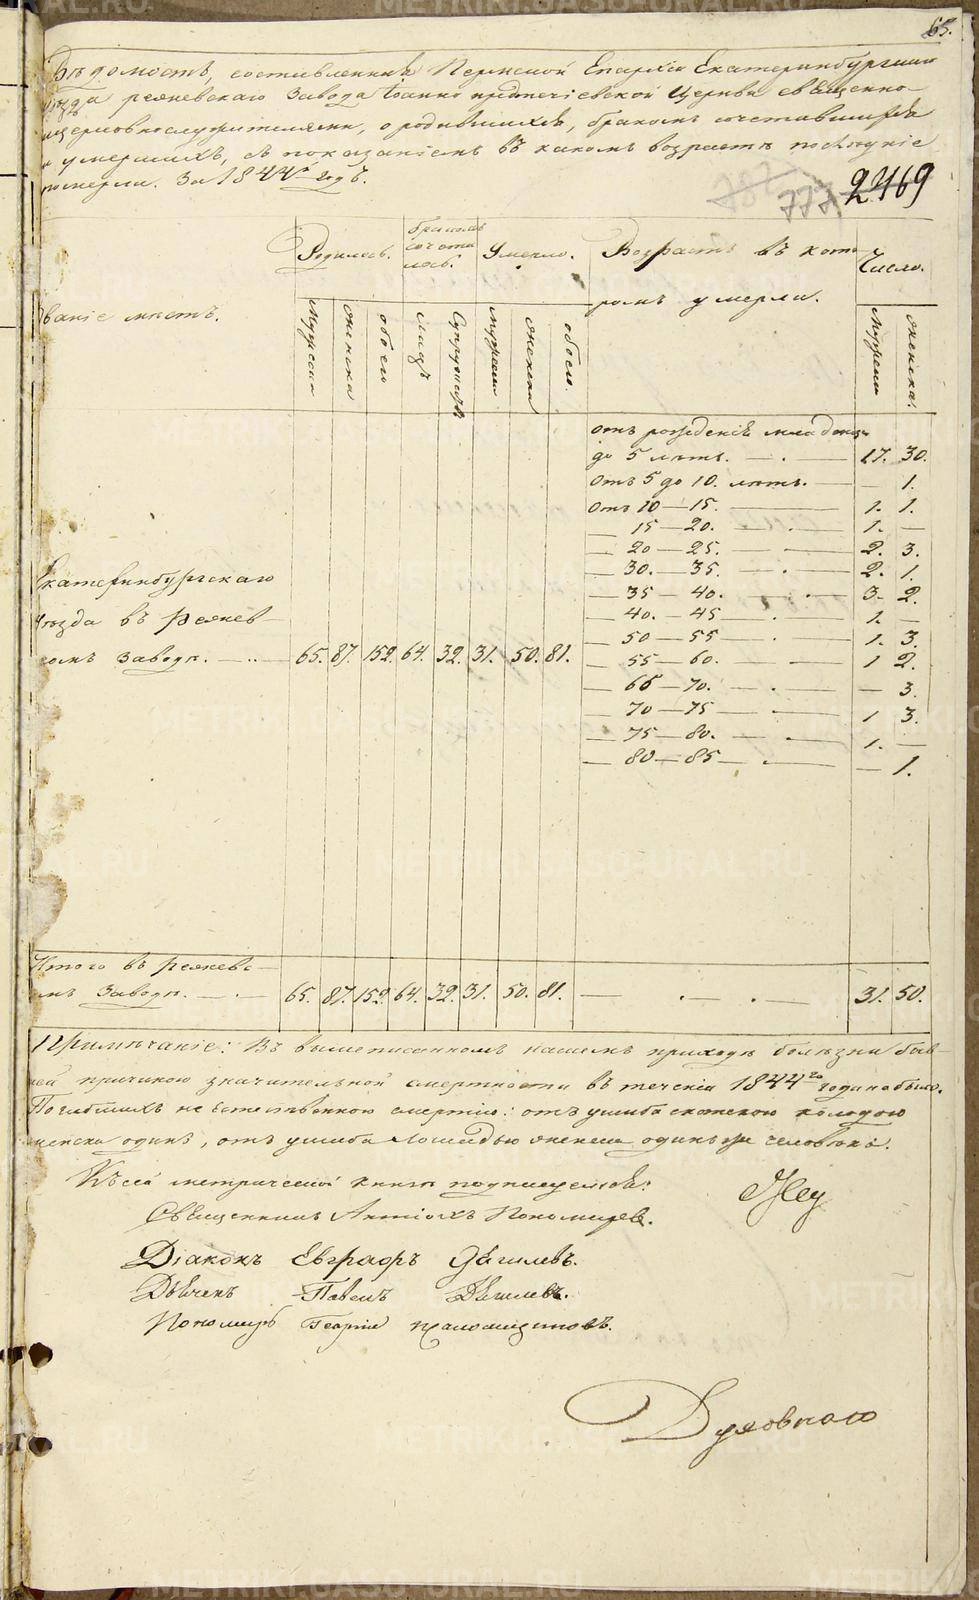 65.
Вѣдомость, составленная Пермской Епархіи Екатеринбургскаго
уѣзда режевскаго Завода Іоанно предтечіевской Церкви священно-
церковнослужителями, о родившихся, бракомъ сочетавшихся
и умершихъ, съ показаніемъ въ какомъ возрастѣ послѣдніе
померли. За 1844й годъ.
777 2469
Родилось. бракомъ сочета лось. Умерло. Возрастъ въ кото Число.
ромъ умерли.
званіе мѣстъ.
Мужеска женска обоего лицъ Супружествъ мужеска женска обоего. мужеска женска.
отъ рожденія младенцы
до 5 лѣтъ. — . — 17. 30.
Отъ 5 до 10. лѣтъ. — — 1.
Отъ 10 — 15. — 1. 1.
— 15 — 20. — . — 1. —
— 20 — 25. — . — 2. 3.
— 30. — 35. — . — 2. 1.
— 35 — 40. — . — 3. 2.
— 40. — 45 — . — 1. —
— 50 — 55 — . — 1. 3.
— 55 — 60. — 1 2.
— 65 — 70. — . — — 3.
— 70 — 75 — . — 1 3.
— 75 — 80. — . — 1. —
— 80 — 85 — . — — 1.
Екатеринбургскаго
уѣзда въ режев-
комъ заводѣ. — .. — 65. 87. 152. 64. 32. 31. 50. 81.
Итого въ режевс-
омъ Заводѣ. — . — 65. 87. 152. 64. 32. 31. 50. 81. — . — . — 31. 50.
Примѣчаніе: Въ вышеписанномъ нашемъ приходѣ болѣзни быв-
шей причиною значительной смертности въ теченіи 1844го года не было.
Погибшихъ не Естественною смертію: отъ ушиба колодою
одинъ, отъ ушиба лошадью женска одинъ же человѣкъ.
Къ сей метрической книгѣ подписуемся:
Священникъ Антіохъ Пономаревъ.
Діаконъ Евграфъ
Дьячекъ Павелъ
Пономарь Георгій
Духовнаго
METRIKI.GASO-URAL.RU